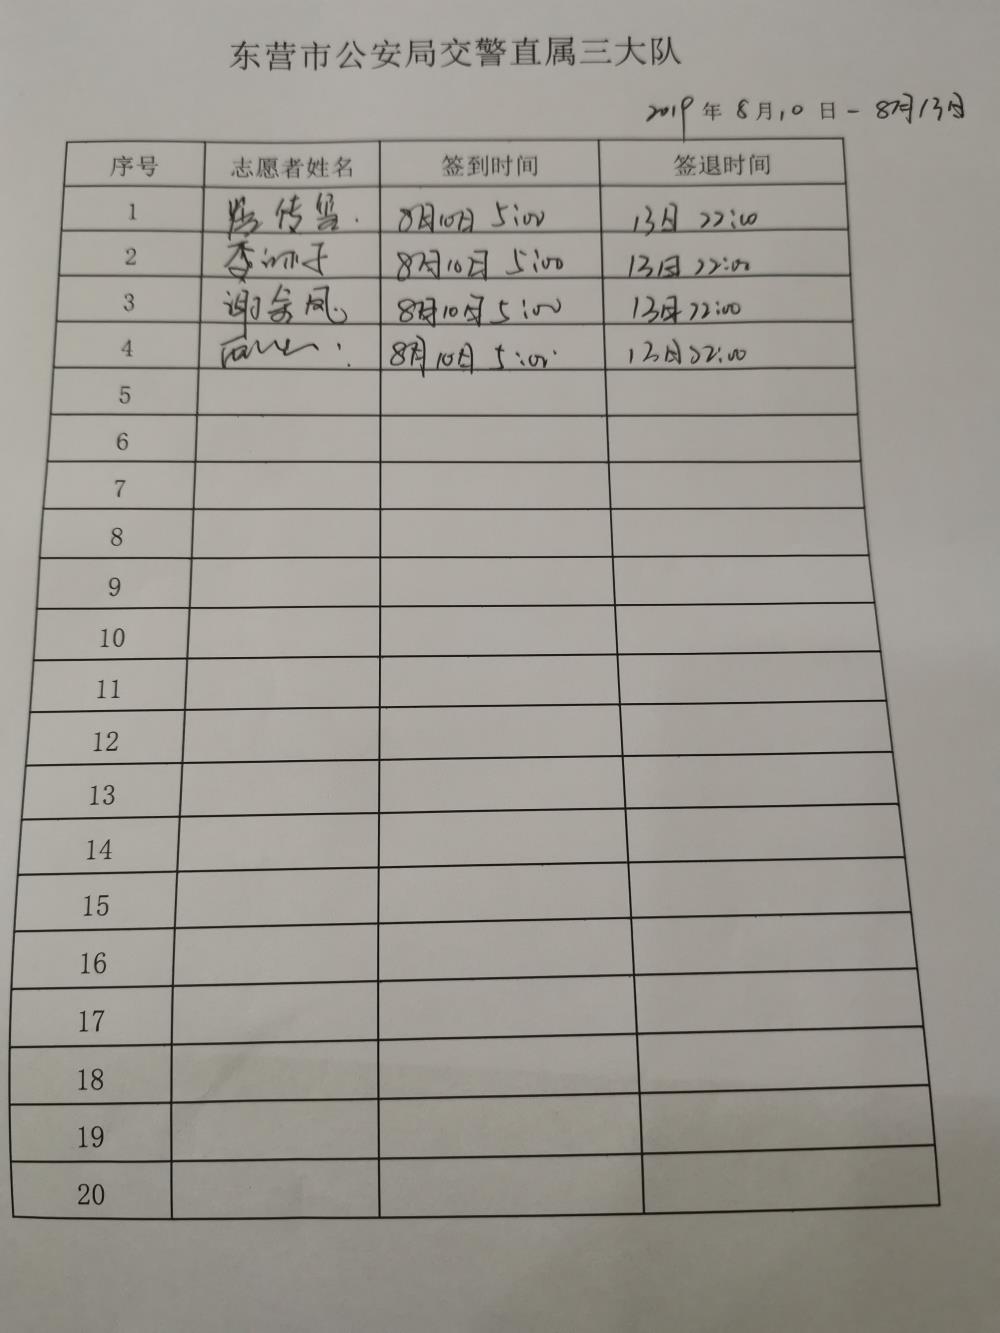 东营市公安局交警直属三大队
2019 年 8 月 10 日 - 8月13日
序号 志愿者姓名 签到时间 签退时间
1 8月10日 5:00 13日 22:00
2 8月10日 5:00 13日 22:00
3 8月10日 5:00 13日 22:00
4 8月10日 5:00 13日 22:00
5
6
7
8
9
10
11
12
13
14
15
16
17
18
19
20